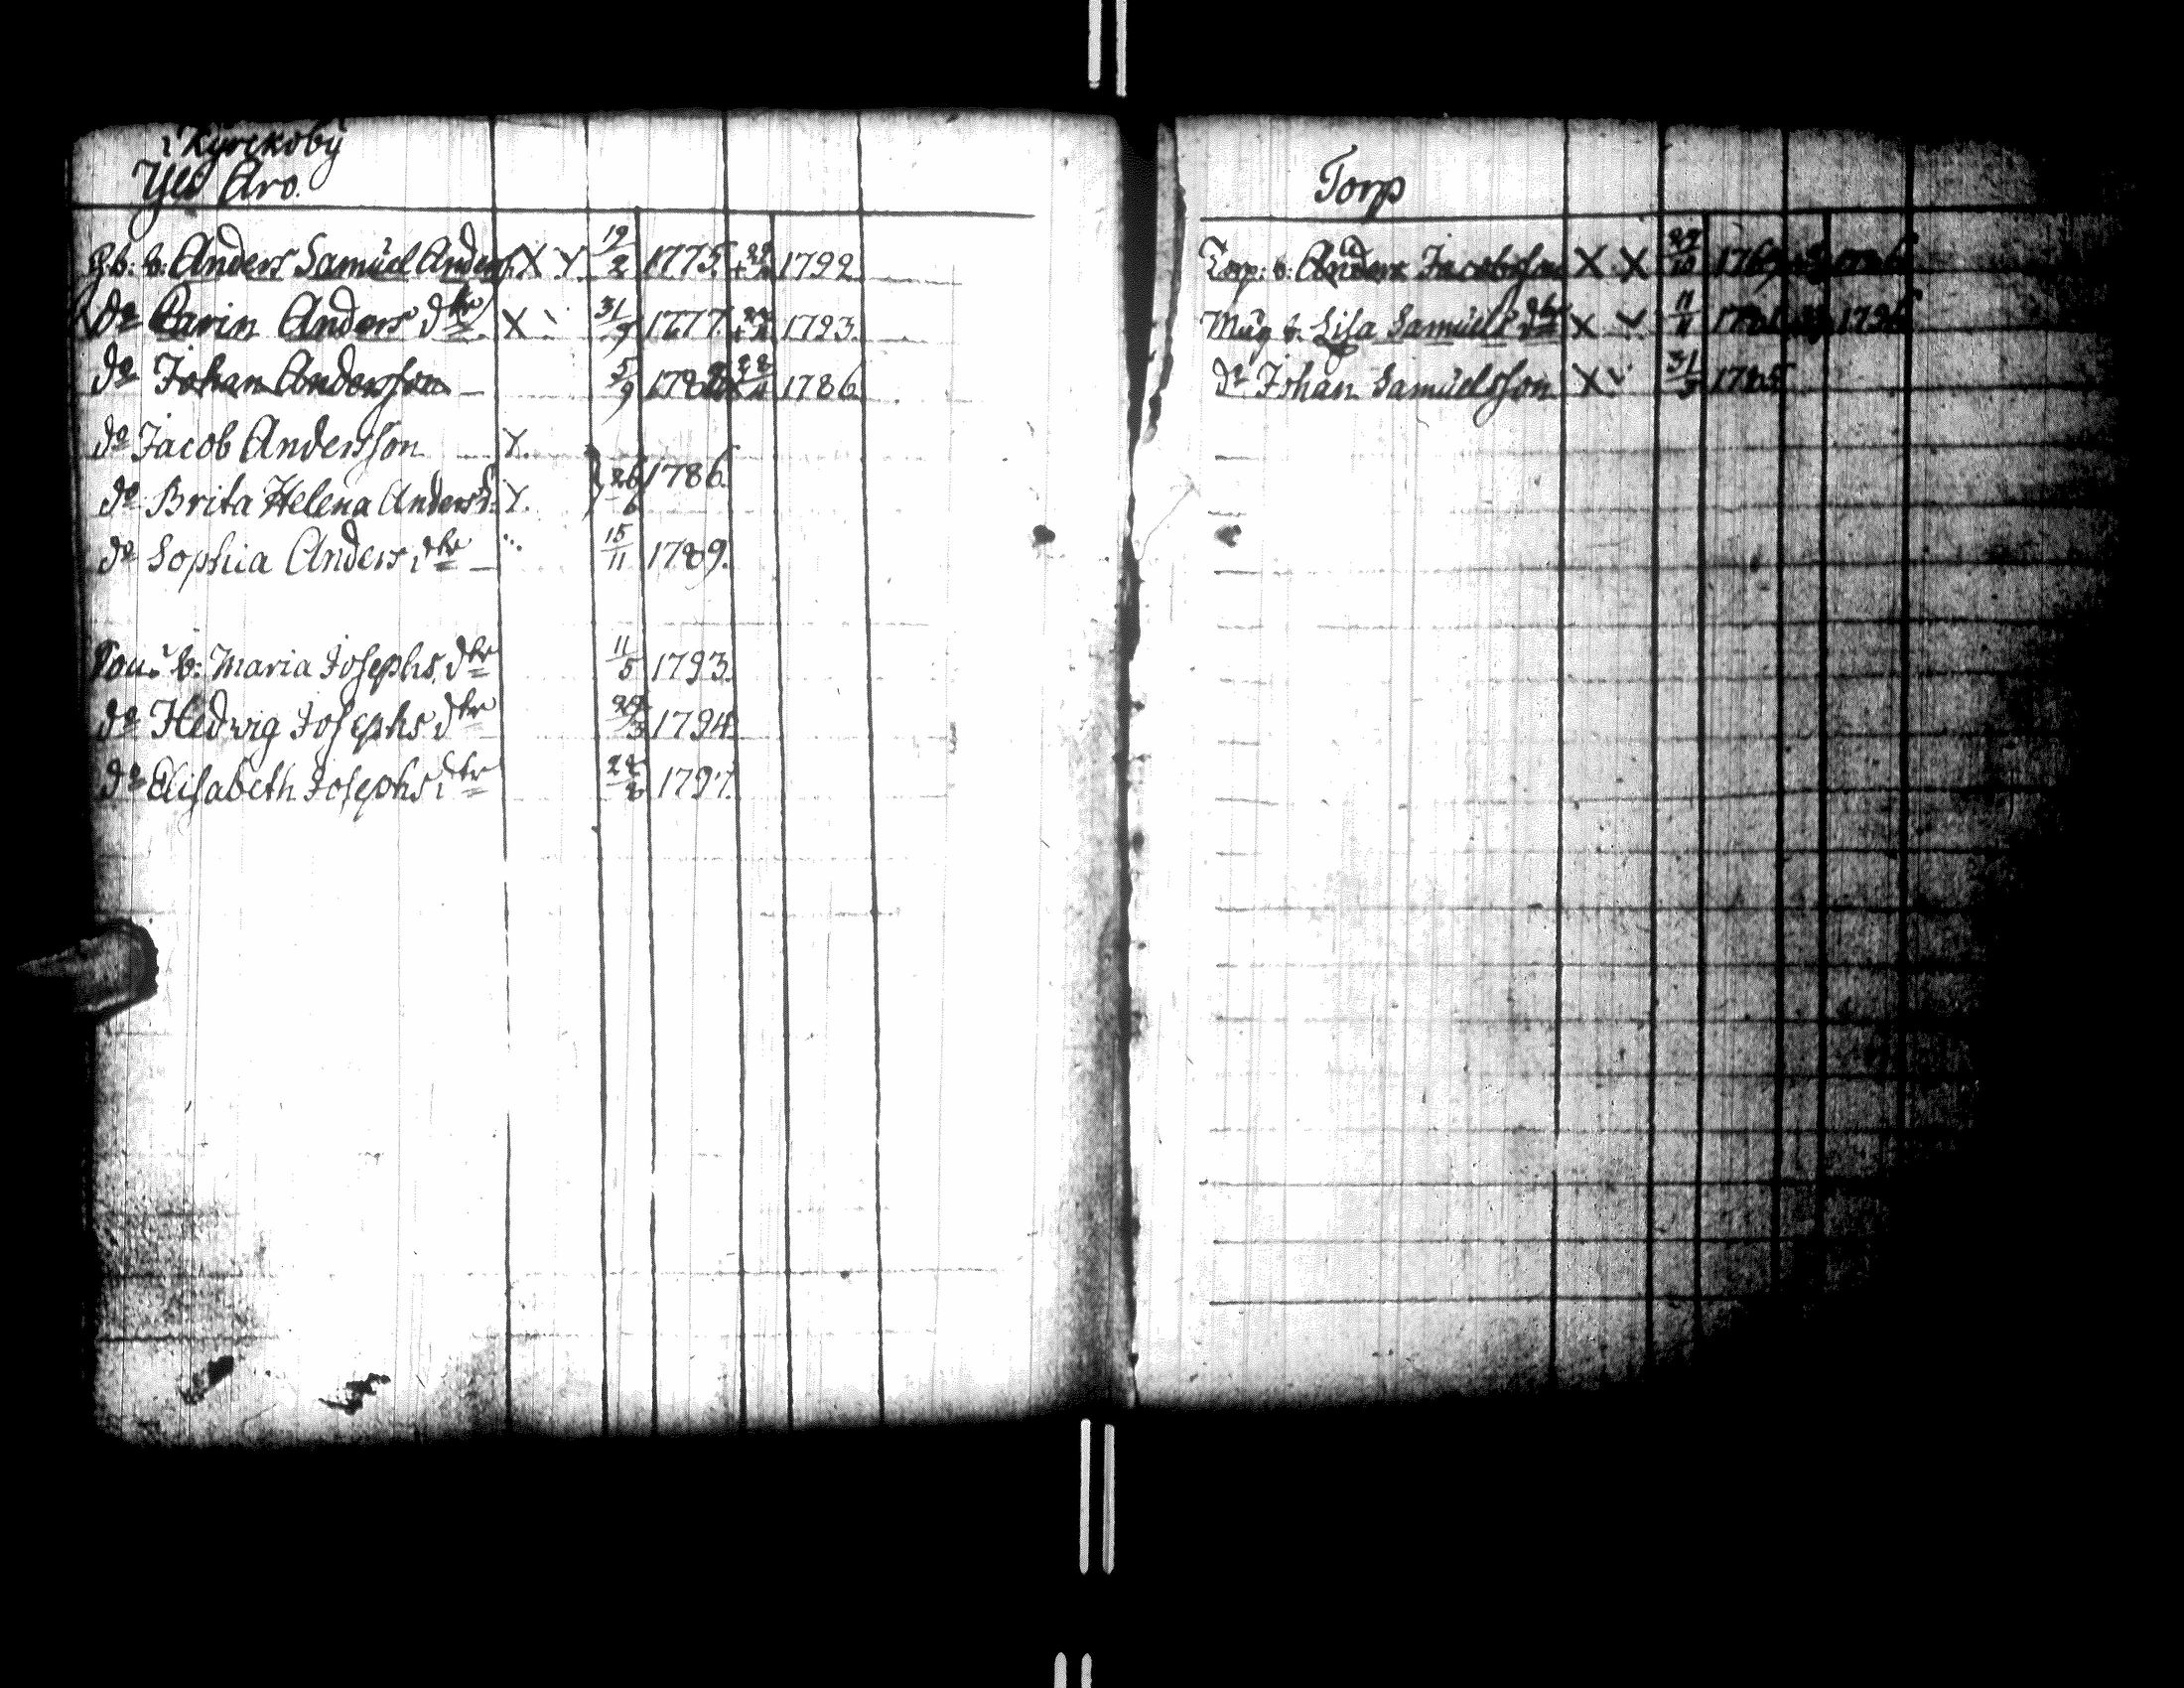 i Kyrckoby
Yli Aro.
G.b: b: Anders Samuel Anders. X Y 19/2 1775. + 1792
do Carin Anders dtr X 31/9 1777. + 1793.
do Johan Andersson 5/9 178 1786
do Jacob Andersson Y.
do Brita Helena Andersd: Y. } 26/6 1786
do Sophia Anders dtr 15/11 1789.
b: Maria Josephs dtr 11/5 1793.
do Hedwig Josephs dtr 29/3 1794
do Elisabeth Josephs dtr 1797.
Torp
Torp: b: Anders Jacobsson X X
b. Lisa Samuels dtr X 11/11
do Johan Samuelsson X 31 1785